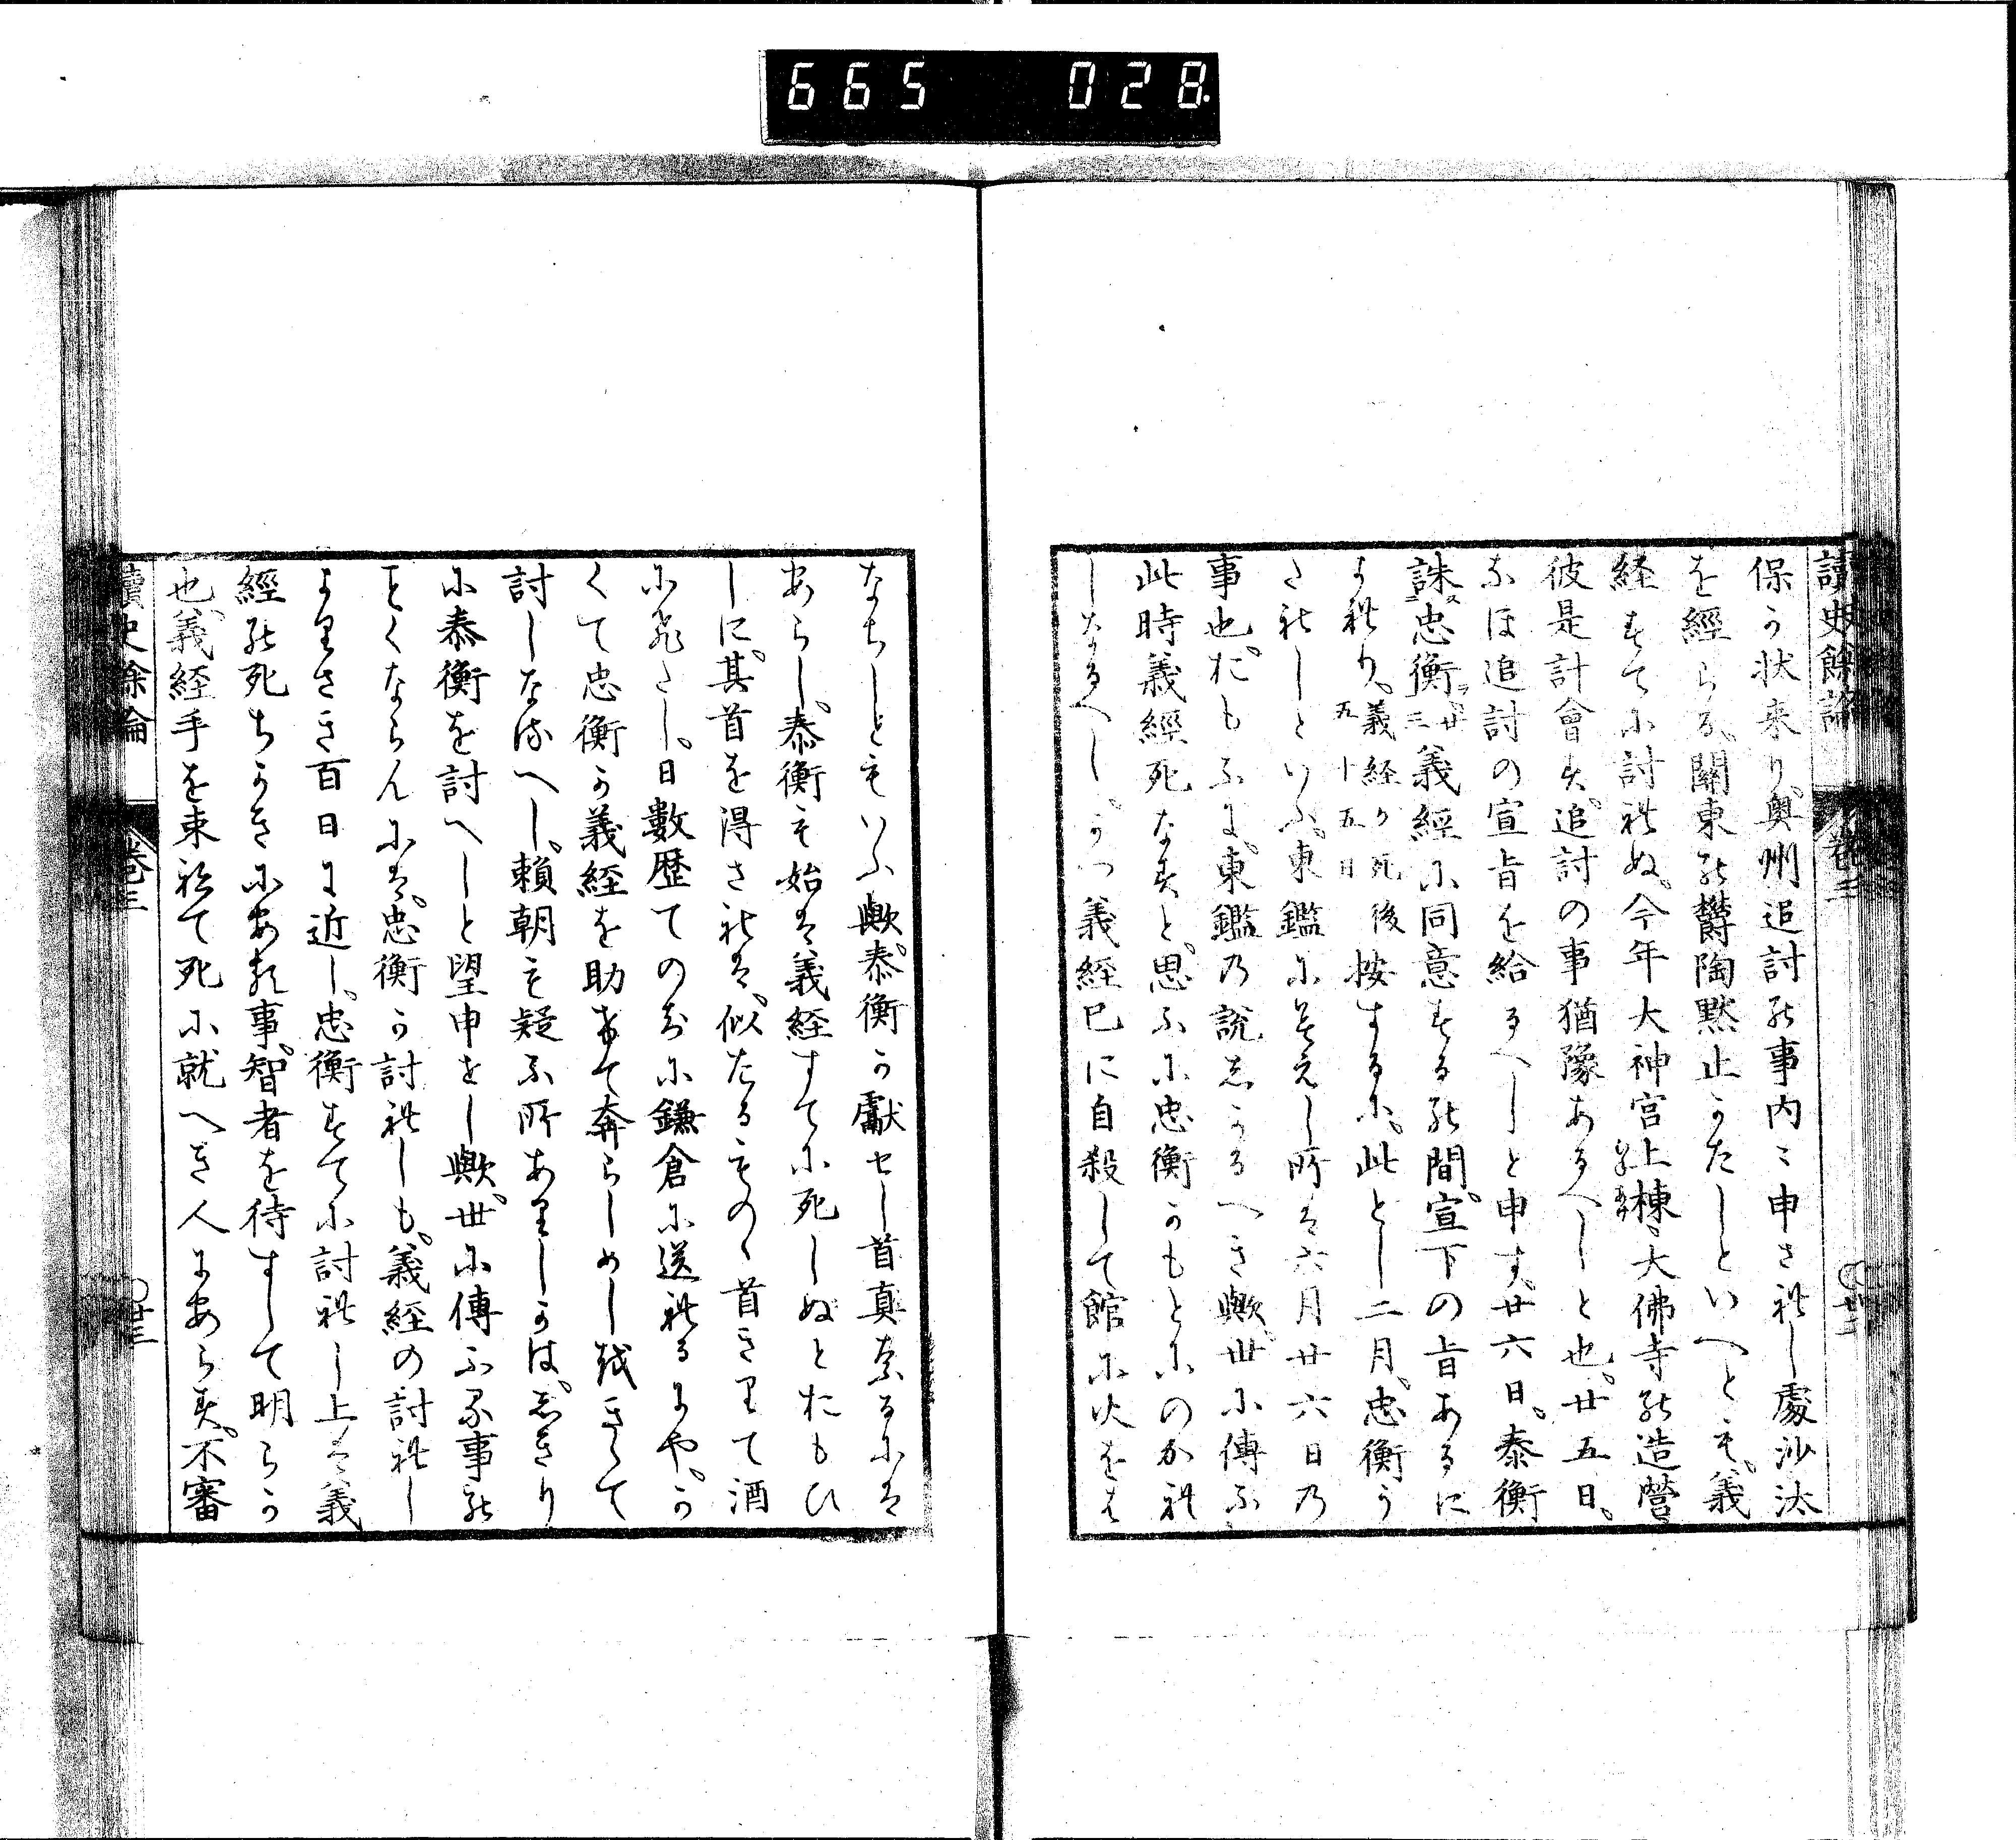 665 028
讀史餘論 卷三 廿二
保か状来り、奥州追討の事内〻申されし處沙汰
を經らる、關東の欝陶黙止かたしといへとも、義
経すてに討れぬ、今年大神宮上棟、大佛寺の造營
彼是計會す、追討の事猶豫あるへしと也、廿五日、
なほ追討の宣旨を給るへしと申す、廿六日、泰衡
誅忠衡廿三義經に同意する間、宣下の旨あるに
よれり、義経か死後五十五日 按するに、此とし二月、忠衡う
たれしといふ、東鑑にみえし所は六月廿六日の
事也、おもふに、東鑑の說しかるへき歟、世に傳ふ、
此時義經死なすと、思ふに忠衡かもとにのかれ
しなるへし、かつ義経已に自殺して館に火をは
なちしともいふ歟、泰衡か獻せし首真なるには
あらし、泰衡も始は義経すてに死しぬとおもひ
しに、其首を得されは、似たるものゝ首きりて酒
にひたし、日數歴てのちに鎌倉に送れるよや、か
くて忠衡か義経を助けて奔らしめしときゝて
討しなるへし、賴朝も疑ふ所ありしかは、しきり
に泰衡を討へしと望申せし歟、世に傳ふる事の
ことくならんには、忠衡か討れしも、義経の討れし
よりさき百日に近し、忠衡すてに討れし上は義
經の死ちかきにある事、智者を待すして明らか
也、義経手を束ねて死に就へき人にあらす、不審
讀史餘論 卷三 廿三